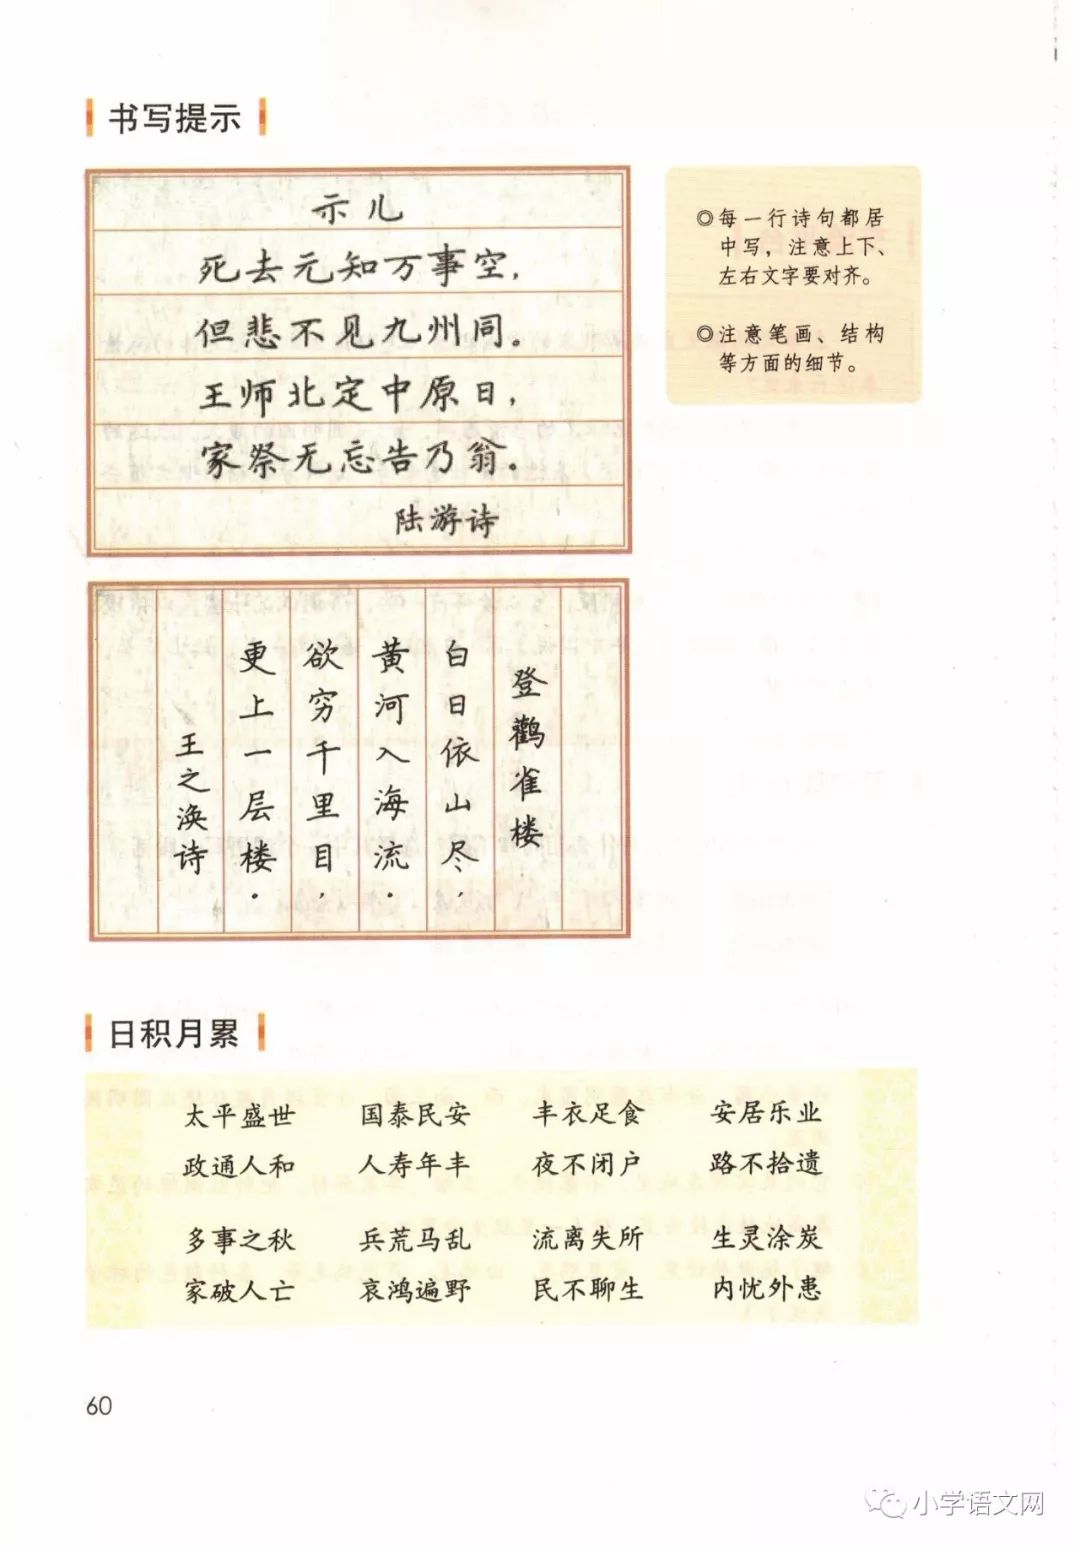 书写提示
示儿
死去元知万事空，
但悲不见九州同。
王师北定中原日，
家祭无忘告乃翁。
陆游诗
◎每一行诗句都居
中写，注意上下、
左右文字要对齐。
◎注意笔画、结构
等方面的细节。
登鹳雀楼
白日依山尽，
黄河入海流。
欲穷千里目，
更上一层楼。
王之涣诗
日积月累
太平盛世 国泰民安 丰衣足食 安居乐业
政通人和 人寿年丰 夜不闭户 路不拾遗
多事之秋 兵荒马乱 流离失所 生灵涂炭
家破人亡 哀鸿遍野 民不聊生 内忧外患
60
小学语文网